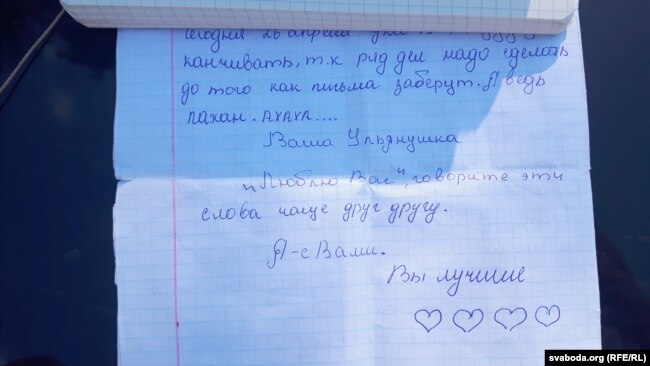 сегодня 26 апреля
канчивать, т.к ряд дел надо сделать
до того как письма заберут. Я ведь
пахан. АХАХА....
Ваша Ульянушка
"Люблю Вас", говорите эти
слова чаще друг другу.
Я-с Вами.
Вы лучшие
svaboda.org (RFE/RL)